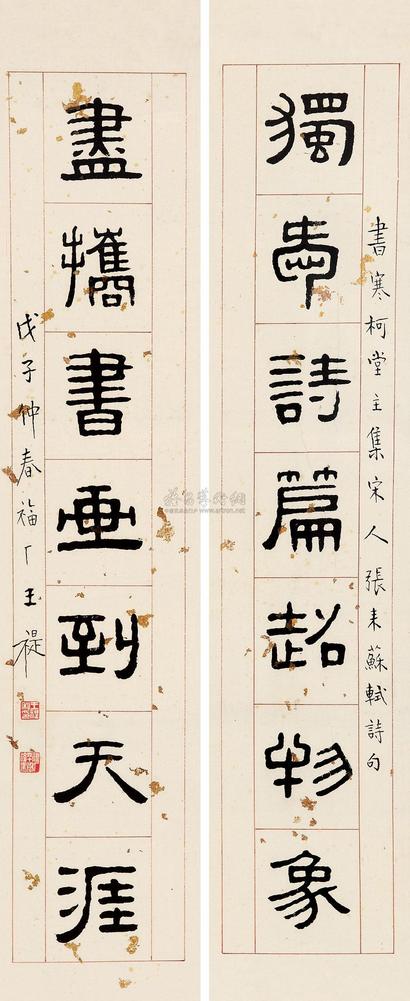 書寒柯堂主集宋人張耒蘇軾詩句
獨愛詩篇超物象
盡攜書畫到天涯
戊子仲春福厂王禔